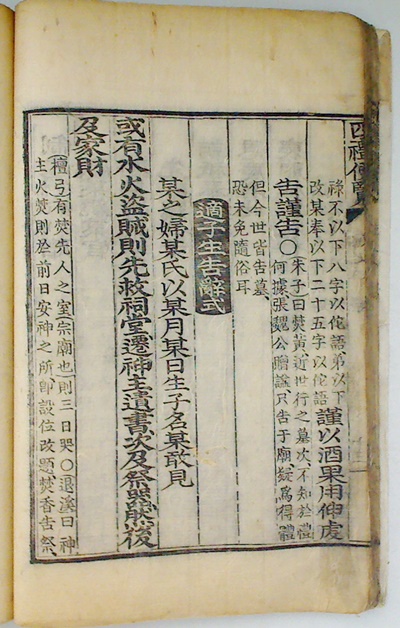 四禮便覽
祿不以下八字以佗語弟以下
改某奉以下二十五字以佗語
謹以酒果用伸虔
告謹告○
朱子曰焚黃近世行之墓次不知於禮
何據張魏公贈諡只告于廟疑爲得禮
但今世皆告墓
恐未免隨俗耳
適子生告辭式
某之婦某氏以某月某日生子名某敢見
或有水火盜賊則先救祠堂遷神主遺書次及祭器然後
及家財
檀弓有焚先人之室宗廟也則三日哭○退溪曰神
主火焚則於前日安神之所卽設位改題焚香告祭